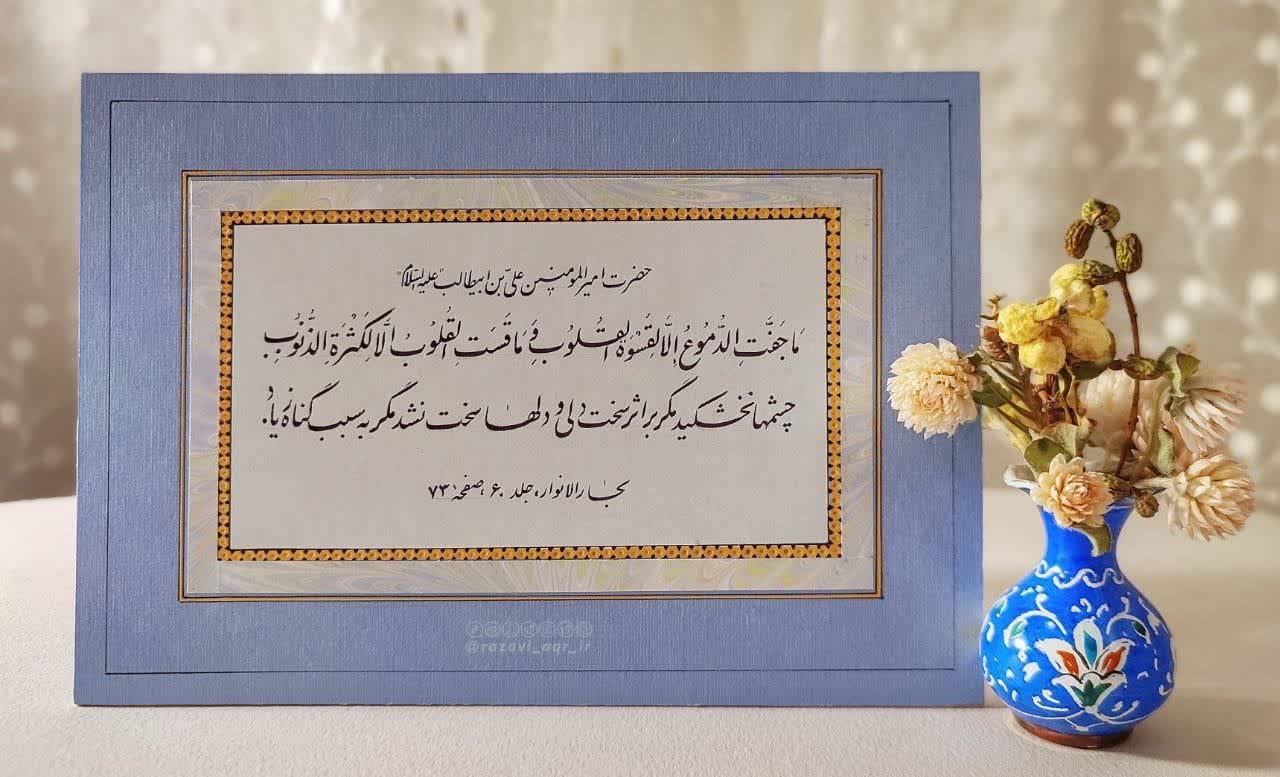 حضرت امیرالمومنین علی بن ابیطالب "علیه السّلام"
مَا جَفَّتِ الدُّمُوعُ إِلَّا لِقَسْوَةِ القُلُوبِ وَ مَا قَسَتِ القُلُوبُ الَّا لِکَثْرَةِ الذُّنُوبِ
چشمها نخشکید مگر بر اثر سخت دلی و دلها سخت نشد مگر به سبب گناه زیاد.
بحارالانوار، جلد ۶۰، صفحهٔ ۷۳
@razavi_aqr_ir